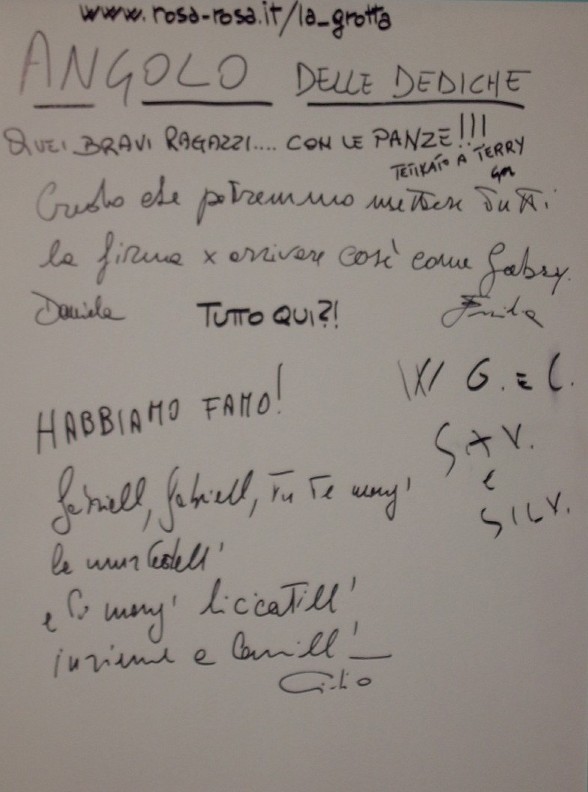 www.rosa-rosa.it/la_grotta
ANGOLO DELLE DEDICHE
QUEI BRAVI RAGAZZI.... CON LE PANZE!!!
A TERRY
Credo che potremmo mettere tutti
la firma x arrivare così come Gabry.
Daniela TUTTO QUI?!
HABBIAMO FAMO!
W G. E C.
SAV.
e
SILV.
Gabriell, Gabriell, tu te mang'
le murtadell'
e te mang' liccatill'
insieme a Camill'